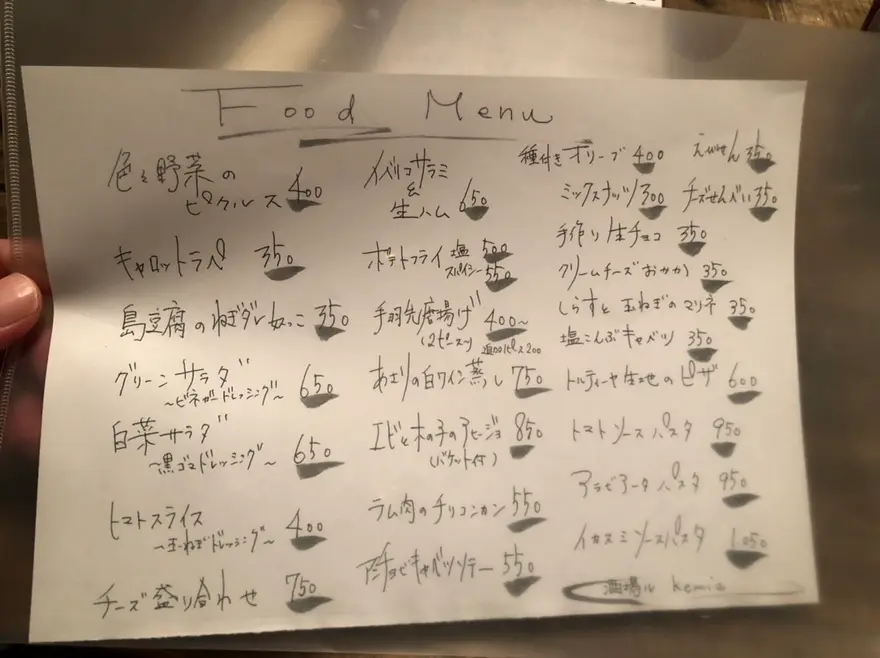 Food Menu
色々野菜の
ピクルス 400
キャロットラペ 350
島豆腐のねぎダレ奴っこ 350
グリーンサラダ 650
〜ビネガードレッシング〜
白菜サラダ 650
〜黒ゴマドレッシング〜
トマトスライス 400
〜玉ねぎドレッシング〜
チーズ盛り合わせ 750
イベリコサラミ
&
生ハム 650
ポテトフライ 塩 500
スパイシー 550
手羽先唐揚げ 400〜
(2ピース) 追加1ピース200
あさりの白ワイン蒸し 750
エビと木の子のアヒージョ 850
(バケット付)
ラム肉のチリコンカン 550
アンチョビキャベツソテー 550
種付きオリーブ 400
えびせん 350
ミックスナッツ 300
チーズせんべい 350
手作り生チョコ 350
クリームチーズおかか 350
しらすと玉ねぎのマリネ 350
塩こんぶキャベツ 350
トルティーヤ生地のピザ 600
トマトソースパスタ 950
アラビアータパスタ 950
イカスミソースパスタ 1.050
酒場ル kemia